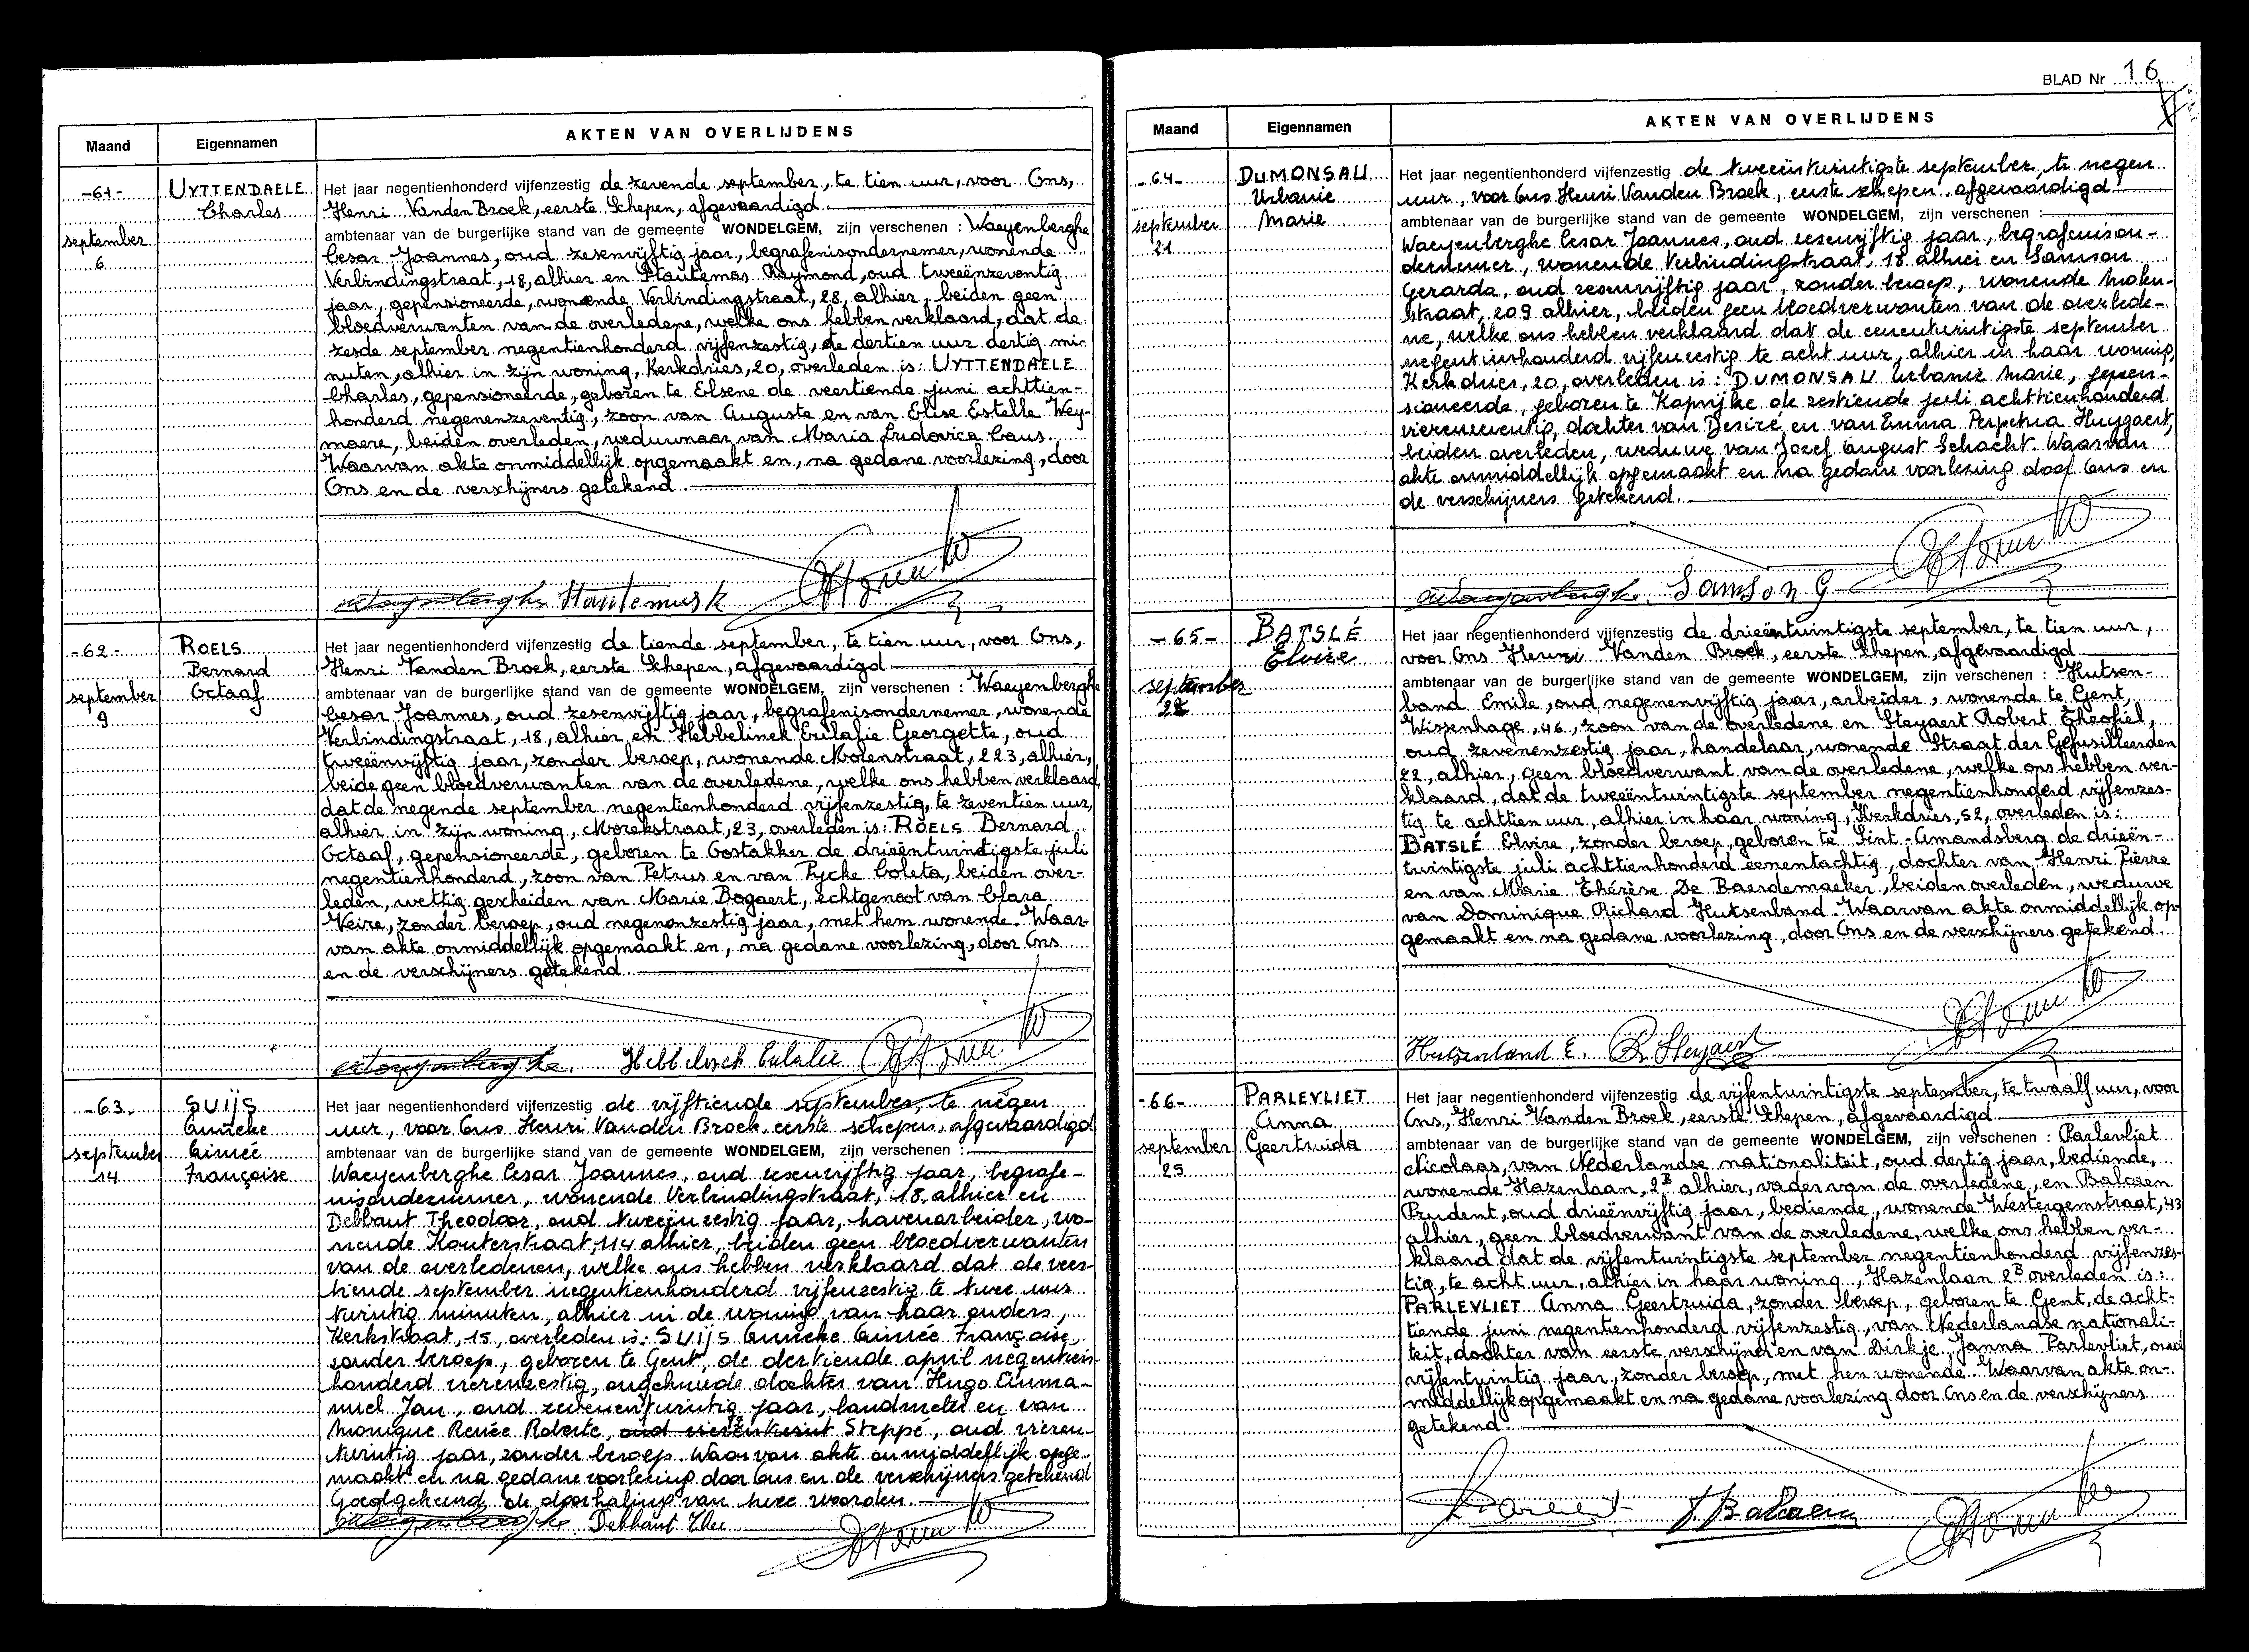 Maand
Eigennamen
AKTEN VAN OVERLIJDENS
-61-
september
6
UYTTENDAELE
Charles
Het jaar negentienhonderd vijfenzestig de zevende september, te tien uur, voor Ons,
Henri VandenBroek, eerste Schepen, afgevaardigd
ambtenaar van de burgerlijke stand van de gemeente WONDELGEM, zijn verschenen : Waeyenberghe
Cesar Joannes, oud zesenvijftig jaar, begrafenisondernemer, wonende
Verbindingstraat, 18, alhier en Stautemas Raymond, oud tweeënzeventig
jaar, gepensioneerde, wonende Verbindingstraat, 28, alhier, beiden geen
bloedverwanten van de overledene, welke ons hebben verklaard, dat de
zesde september negentienhonderd vijfenzestig, te dertien uur dertig mi-
nuten, alhier in zijn woning, Kerkdries, 20, overleden is: UYTTENDAELE
Charles, gepensioneerde, geboren te Elsene de veertiende juni achttien-
honderd negenenzeventig, zoon van Auguste en van Elise Estelle Wey-
maere, beiden overleden, weduwnaar van Maria Ludovica Caus.
Waarvan akte onmiddellijk opgemaakt en, na gedane voorlezing, door
Ons en de verschijners getekend.
-62-
september
9
ROELS
Bernard
Octaaf
Het jaar negentienhonderd vijfenzestig de tiende september, te tien uur, voor Ons,
Henri Vanden Broek, eerste Schepen, afgevaardigd
ambtenaar van de burgerlijke stand van de gemeente WONDELGEM, zijn verschenen : Waeyenberghe
Cesar Joannes, oud zesenvijftig jaar, begrafenisondernemer, wonende
Verbindingstraat, 18, alhier en Hebbelinck Eulalie Georgette, oud
tweeënvijftig jaar, zonder beroep, wonende Molenstraat, 223, alhier,
beide geen bloedverwanten van de overledene, welke ons hebben verklaard,
dat de negende september negentienhonderd vijfenzestig, te zeventien uur,
alhier in zijn woning, Morekstraat, 23, overleden is: ROELS Bernard
Octaaf, gepensioneerde, geboren te Oostakker de drieëntwintigste juli
negentienhonderd, zoon van Petrus en van Pycke Coleta, beiden over-
leden, wettig gescheiden van Marie Bogaert, echtgenoot van Clara
Neire, zonder beroep, oud negenenzestig jaar, met hem wonende. Waar-
van akte onmiddellijk opgemaakt en, na gedane voorlezing, door Ons
en de verschijners getekend
Hebbelinck Eulalie
-63-
september
14
SUIJS
Anneke
Aimée
Françoise
Het jaar negentienhonderd vijfenzestig de vijftiende september, te negen
uur, voor Ons Henri Vanden Broek, eerste schepen, afgevaardigd
ambtenaar van de burgerlijke stand van de gemeente WONDELGEM, zijn verschenen :
Waeyenberghe Cesar Joannes, oud zesenvijftig jaar, begrafe-
nisondernemer, wonende Verbindingstraat, 18, alhier en
Debbaut Theodoor, oud tweeënzestig jaar, havenarbeider, wo-
nende Kouterstraat, 114 alhier, beiden geen bloedverwanten
van de overledenen, welke ons hebben verklaard dat de veer-
tiende september negentienhonderd vijfenzestig te twee uur
twintig minuten, alhier in de woning van haar ouders,
Kerkstraat, 15, overleden is: SUIJS Anneke Aimée Françoise,
zonder beroep, geboren te Gent, de dertiende april negentien-
honderd vierenzestig, ongehuwde dochter van Hugo Emma-
nuel Jan, oud zevenentwintig jaar, landmeter en van
Monique Renée Roberte, oud vierentwint Steppé, oud vieren-
twintig jaar, zonder beroep. Waarvan akte onmiddellijk opge-
maakt en na gedane voorlezing door Ons en de verschijners getekend
Goedgekeurd de doorhaling van twee woorden.
BLAD Nr 16
Maand
Eigennamen
AKTEN VAN OVERLIJDENS
-64-
september
21
DUMONSAU
Urbanie
Marie
Het jaar negentienhonderd vijfenzestig de tweeëntwintigste september, te negen
uur, voor Ons Henri Vanden Broek, eerste schepen, afgevaardigd
ambtenaar van de burgerlijke stand van de gemeente WONDELGEM, zijn verschenen :
Waeyenberghe Cesar Joannes, oud zesenvijftig jaar, begrafenison-
dernemer, wonende Verbindingstraat, 18 alhier en Samson
Gerarda, oud zesenvijftig jaar, zonder beroep, wonende Molen-
straat, 209 alhier, beiden geen bloedverwanten van de overlede-
ne, welke ons hebben verklaard dat de eenentwintigste september
negentienhonderd vijfenzestig te acht uur, alhier in haar woning,
Kerkdries, 20, overleden is: DUMONSAU Urbanie Marie, gepen-
sioneerde, geboren te Kaprijke de zestiende juli achttienhonderd
vierenzeventig, dochter van Desiré en van Emma Perpetua Huygaert,
beiden overleden, weduwe van Jozef August Schacht. Waarvan
akte onmiddellijk opgemaakt en na gedane voorlezing door Ons en
de verschijners getekend.
Samson G
-65-
september
22
BATSLÉ
Elvire
Het jaar negentienhonderd vijfenzestig de drieëntwintigste september, te tien uur,
voor Ons Henri Vanden Broek, eerste Schepen, afgevaardigd
ambtenaar van de burgerlijke stand van de gemeente WONDELGEM, zijn verschenen : Hutsen-
band Emile, oud negenenvijftig jaar, arbeider, wonende te Gent,
Wissenhage, 46, zoon van de overledene en Steyaert Robert Theofiel,
oud zevenenzestig jaar, handelaar, wonende Straat der Gefusilleerden
22, alhier, geen bloedverwant van de overledene, welke ons hebben ver-
klaard, dat de tweeëntwintigste september negentienhonderd vijfenzes-
tig te achttien uur, alhier in haar woning, Kerkdries, 52, overleden is:
BATSLÉ Elvire, zonder beroep, geboren te Sint-Amandsberg de drieën-
twintigste juli achttienhonderd eenentachtig, dochter van Henri Pierre
en van Marie Thérèse De Baerdemaeker, beiden overleden, weduwe
van Dominique Richard Hutsenband. Waarvan akte onmiddellijk op-
gemaakt en na gedane voorlezing, door Ons en de verschijners getekend.
Hutsenband E. R. Steyaert
-66-
september
25
PARLEVLIET
Anna
Geertruida
Het jaar negentienhonderd vijfenzestig de vijfentwintigste september, te twaalf uur, voor
Ons, Henri Vanden Broek, eerste Schepen, afgevaardigd
ambtenaar van de burgerlijke stand van de gemeente WONDELGEM, zijn verschenen : Parlevliet
Nicolaas, van Nederlandse nationaliteit, oud dertig jaar, bediende,
wonende Hazenlaan, 2B alhier, vader van de overledene, en Balcaen
Prudent, oud drieënvijftig jaar, bediende, wonende Westergemstraat, 43
alhier, geen bloedverwant van de overledene, welke ons hebben ver-
klaard dat de vijfentwintigste september negentienhonderd vijfenzes-
tig, te acht uur, alhier in haar woning, Hazenlaan 2B overleden is:
PARLEVLIET Anna Geertruida, zonder beroep, geboren te Gent, de acht-
tiende juni negentienhonderd vijfenzestig, van Nederlandse nationali-
teit, dochter van eerste verschijner en van Dirkje Janna Parlevliet, oud
vijfentwintig jaar, zonder beroep, met hen wonende. Waarvan akte on-
middellijk opgemaakt en na gedane voorlezing door Ons en de verschijners
getekend.